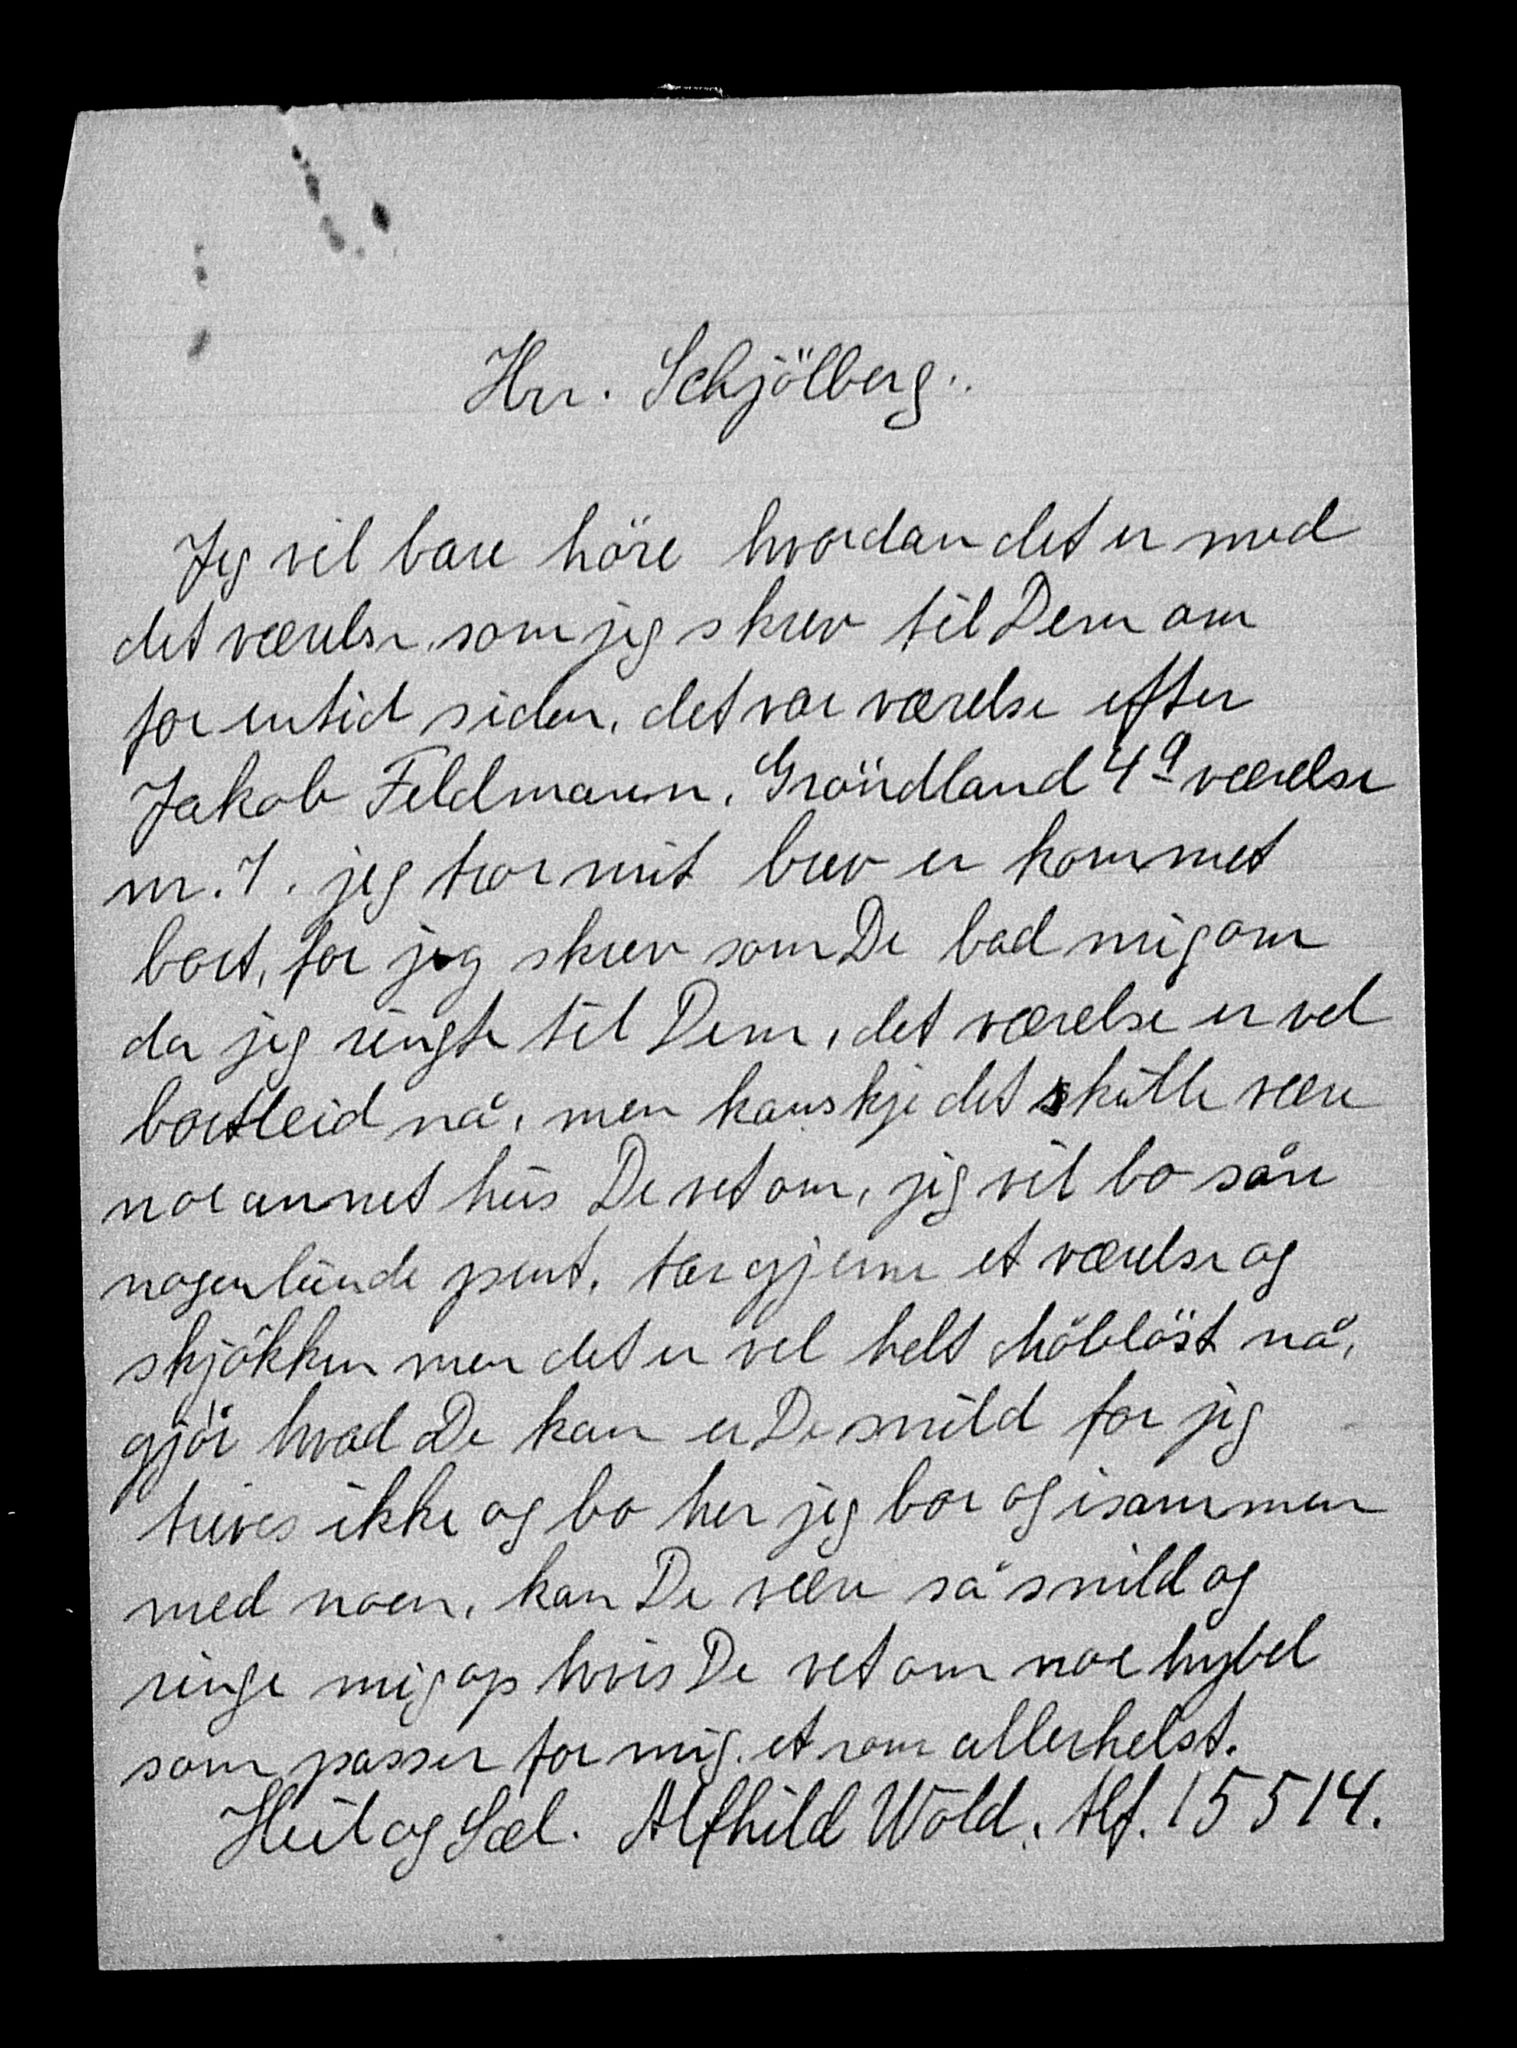 Hrr. Schjölberg..
Jeg vil bare höre hvordan det er med
det værelse, som jeg skrev til Dem om
for entid siden, det var værelse efter
Jakob Feldmann, Gröndland 4a værelse
nr. 7. jeg tror mit brev er kommet
bort, for jeg skrev som De bad mig om
da jeg ringte til Dem, det værelse er vel
bortleid nå, men kanskje det skulle være
noe annet hus De vet om, jeg vil bo såre
nogenlunde pent, tar gjerne et værelse og
skjökken men det er vel helt håblöst nå,
gjör hvad De kan er De snild for jeg
trives ikke og bo her jeg bor og isammen
med noen, kan De være så snild og
ringe mig op hvis De vet om noe hybel
som passer for mig. et rom allerhelst.
Heil og Sæl. Alfhild Wold. tlf. 15514.